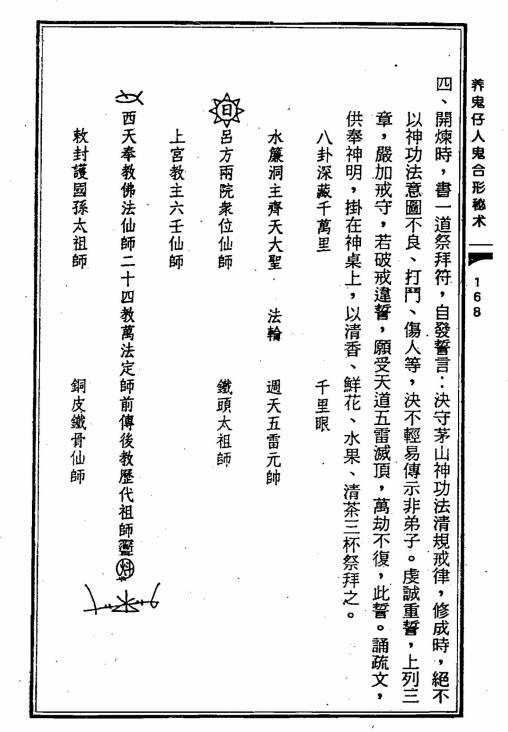 养鬼仔人鬼合形秘术
168
四、開煉時，書一道祭拜符，自發誓言：決守茅山神功法清規戒律，修成時，絕不
以神功法意圖不良、打鬥、傷人等，決不輕易傳示非弟子。虔誠重誓，上列三
章，嚴加戒守，若破戒違誓，願受天道五雷滅頂，萬劫不復，此誓。誦疏文，
供奉神明，掛在神桌上，以清香、鮮花、水果、清茶三杯祭拜之。
八卦深藏千萬里 千里眼
水簾洞主齊天大聖 法輪 週天五雷元帥
日 呂方兩院衆位仙師 鐵頭太祖師
上宮教主六壬仙師
西天奉教佛法仙師二十四教萬法定師前傳後教歷代祖師
敕封護國孫太祖師 銅皮鐵骨仙師